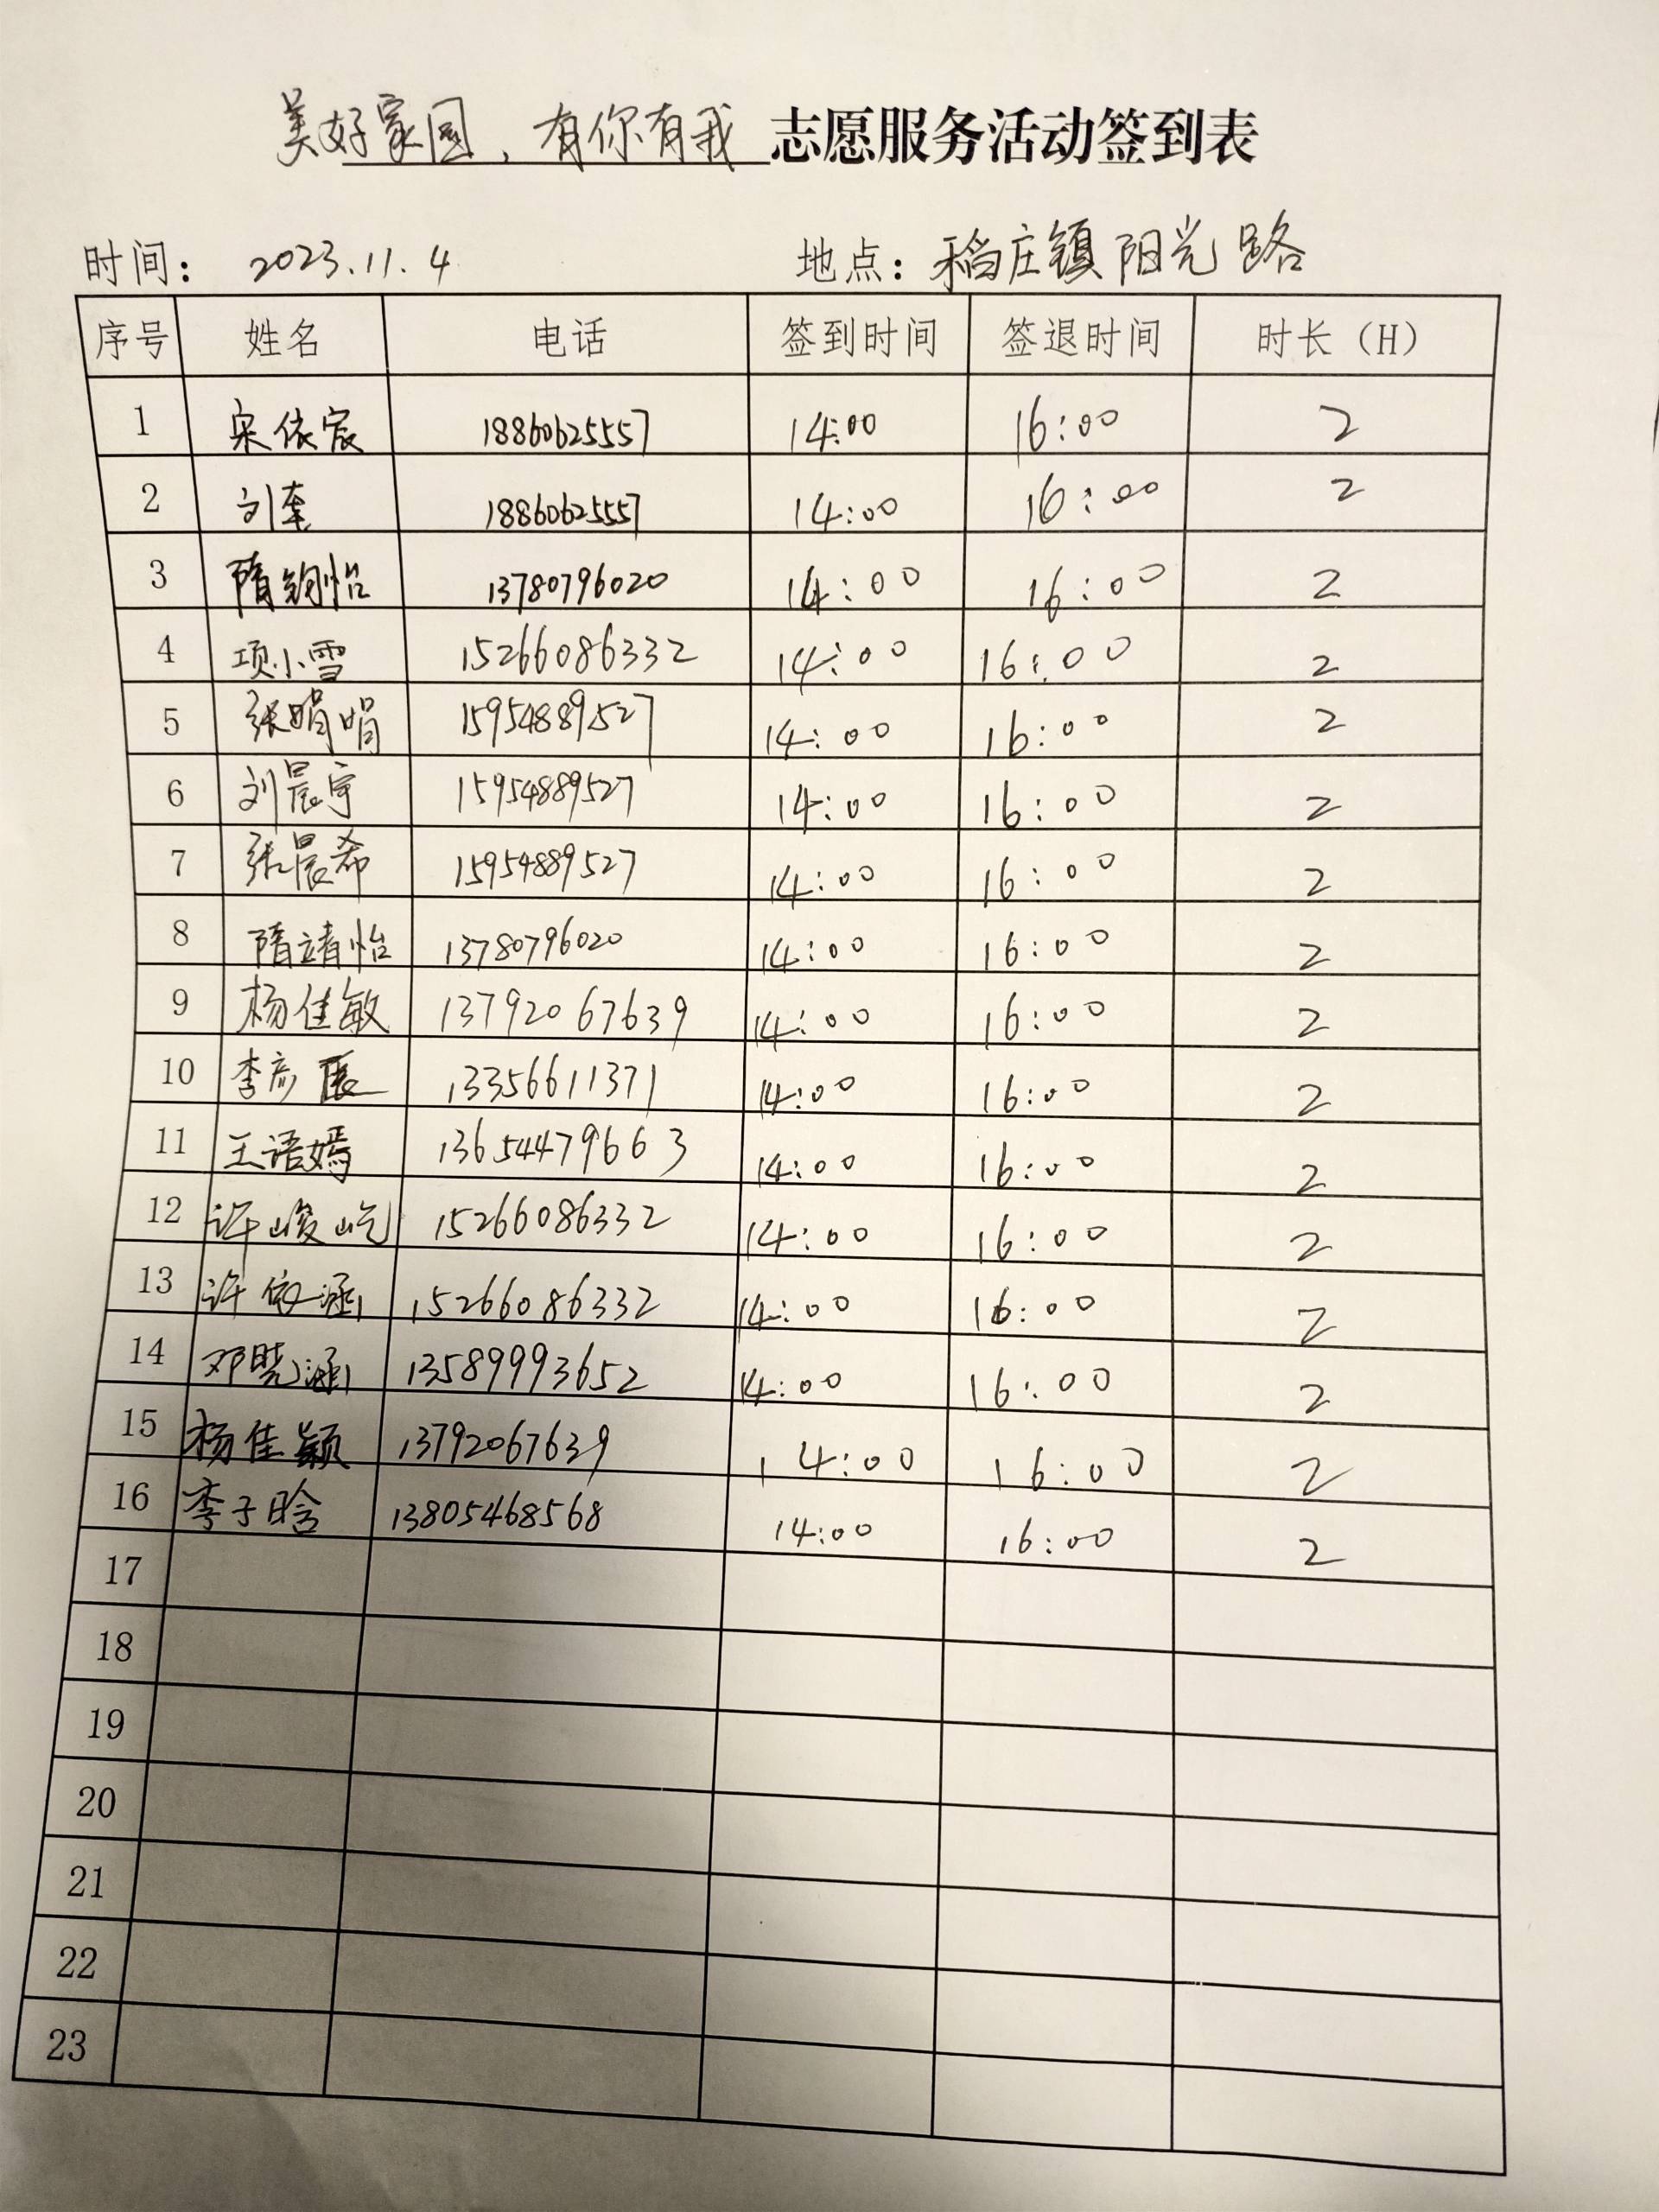 美好家园，有你有我 志愿服务活动签到表
时间： 2023.11.4 地点：稻庄镇阳光路
序号 姓名 电话 签到时间 签退时间 时长（H）
1 宋依宸 18860625557 14:00 16:00 2
2 刘奎 18860625557 14:00 16:00 2
3 隋钶怡 13780796020 14:00 16:00 2
4 项小雪 15266086332 14:00 16:00 2
5 张娟娟 15954889527 14:00 16:00 2
6 刘晨宇 15954889527 14:00 16:00 2
7 张晨希 15954889527 14:00 16:00 2
8 隋靖怡 13780796020 14:00 16:00 2
9 杨佳敏 13792067639 14:00 16:00 2
10 李彦辰 13356611371 14:00 16:00 2
11 王语嫣 13654479663 14:00 16:00 2
12 许峻屹 15266086332 14:00 16:00 2
13 许依涵 15266086332 14:00 16:00 2
14 邓晓涵 13589993652 14:00 16:00 2
15 杨佳颖 13792067639 14:00 16:00 2
16 李子晗 13805468568 14:00 16:00 2
17
18
19
20
21
22
23